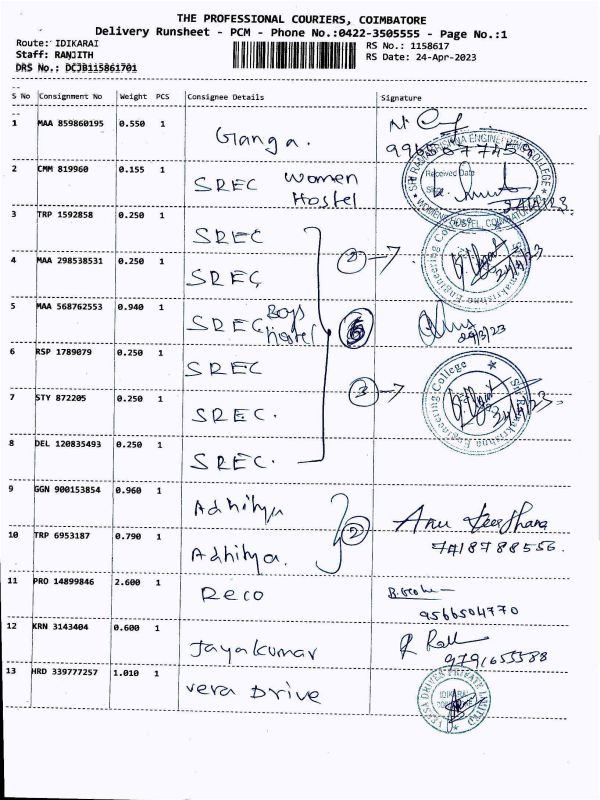 THE PROFESSIONAL COURIERS, COIMBATORE
Delivery Runsheet - PCM - Phone No.:0422-3505555 - Page No.:1
Route: IDIKARAI
RS No.: 1158617
Staff: RANJITH
RS Date: 24-Apr-2023
DRS No.: DCJB115861701
S No Consignment No Weight PCS Consignee Details Signature
1 MAA 859860195 0.550 1 Ganga.
2 CMM 819960 0.155 1 SREC Women Hostel
Received Date
3 TRP 1592858 0.250 1 SREC
4 MAA 298538531 0.250 1 SREC
2
5 MAA 568762553 0.940 1 SREC Boys Hostel
6 RSP 1789079 0.250 1 SREC
7 STY 872205 0.250 1 SREC.
3
8 DEL 120835493 0.250 1 SREC.
9 GGN 900153854 0.960 1 Adhitya
10 TRP 6953187 0.790 1 Adhitya.
2
7418788556.
11 PRO 14899846 2.600 1 Reco
9566504770
12 KRN 3143404 0.600 1 Jayakumar
9791655588
13 HRD 339777257 1.010 1 vera Drive
IDIKARAI